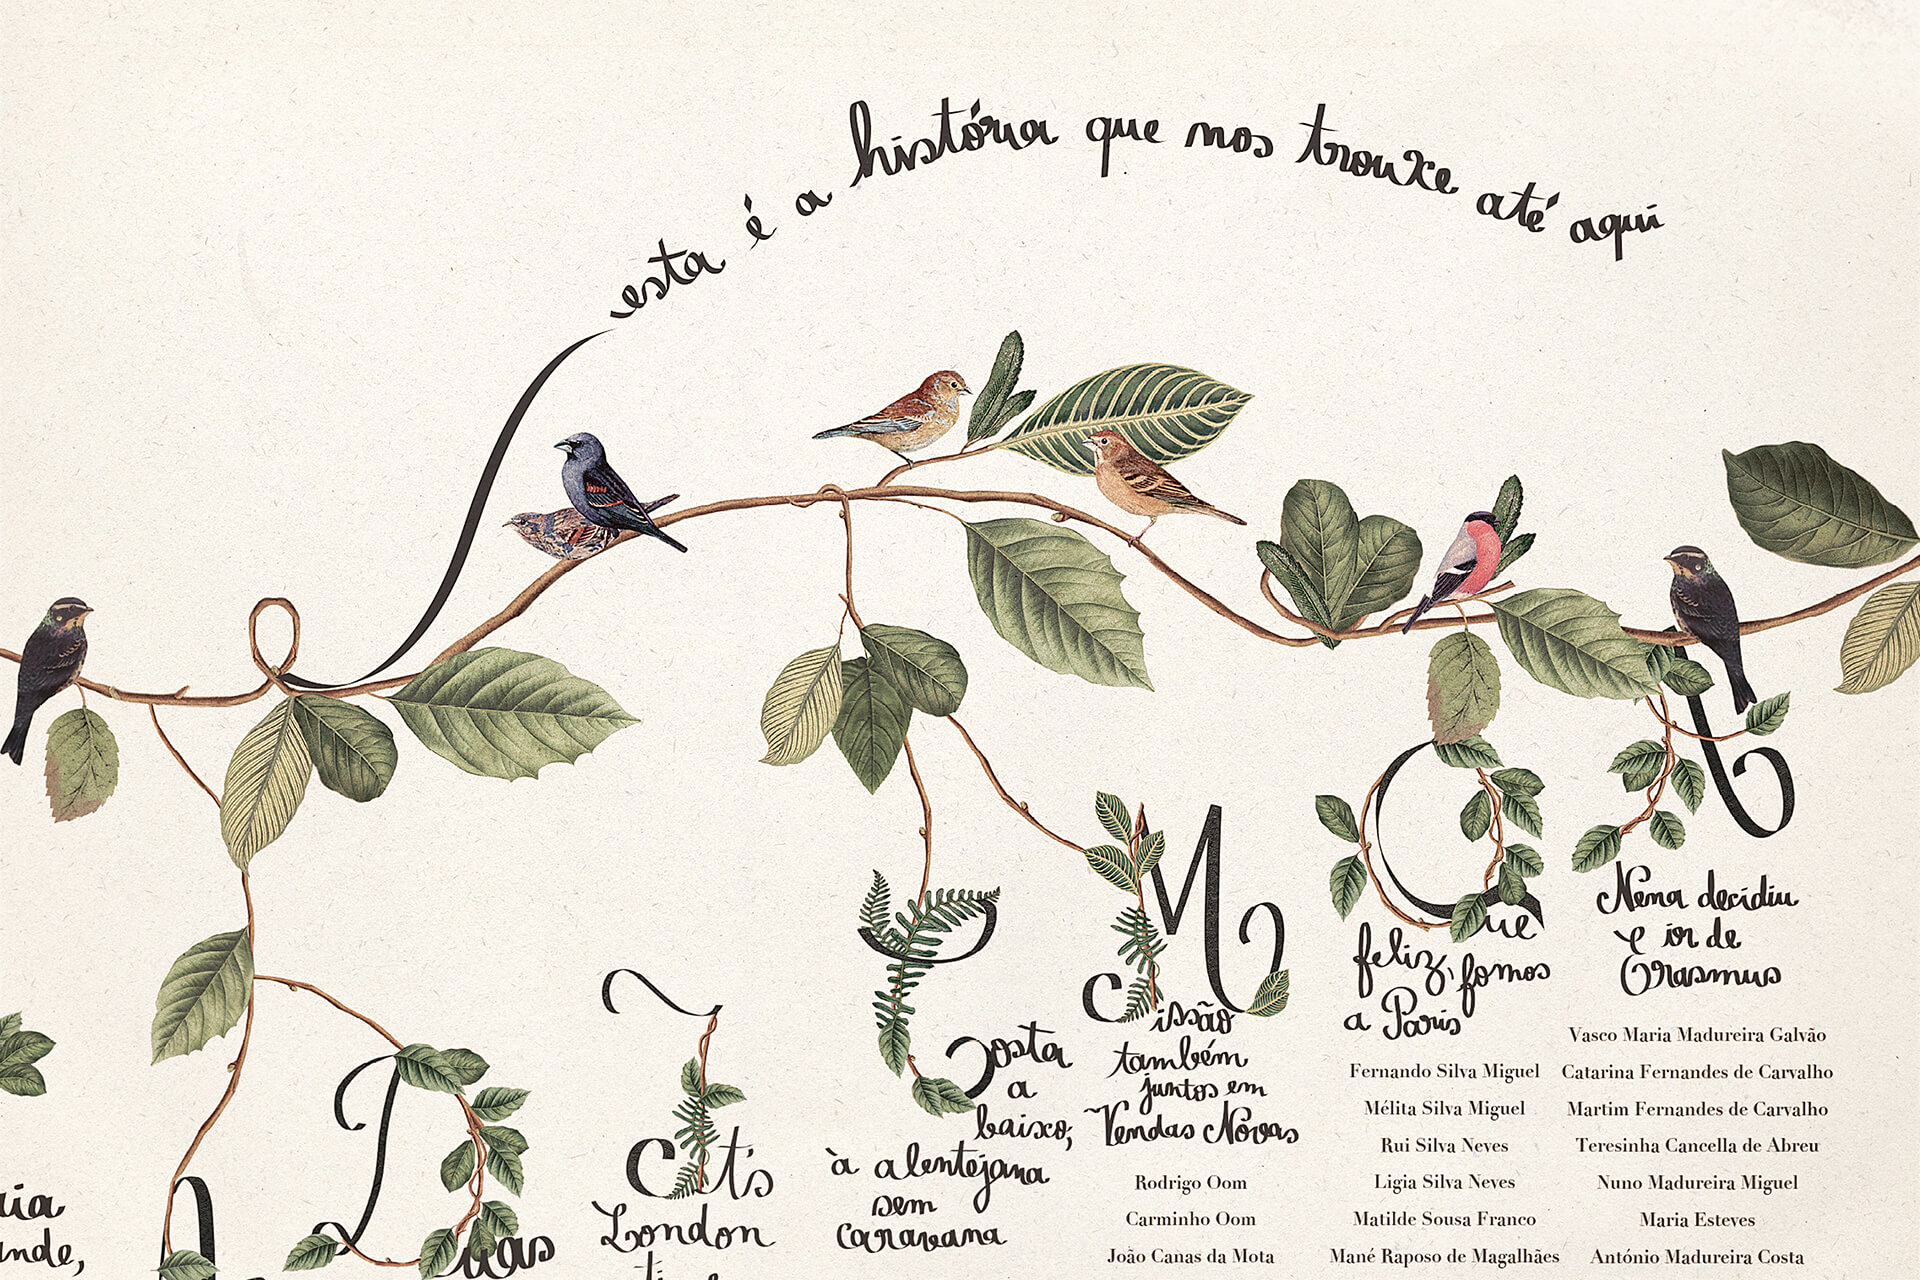 esta é a história que nos trouxe até aqui
Duas
It's
London
Costa
a
baixo,
à alentejana
sem
caravana
Missão
também
juntos em
Vendas Novas
Rodrigo Oom
Carminho Oom
João Canas da Mota
Que
feliz, fomos
a Paris
Fernando Silva Miguel
Mélita Silva Miguel
Rui Silva Neves
Ligia Silva Neves
Matilde Sousa Franco
Mané Raposo de Magalhães
A
Nena decidiu
ir de
Erasmus
Vasco Maria Madureira Galvão
Catarina Fernandes de Carvalho
Martim Fernandes de Carvalho
Teresinha Cancella de Abreu
Nuno Madureira Miguel
Maria Esteves
António Madureira Costa